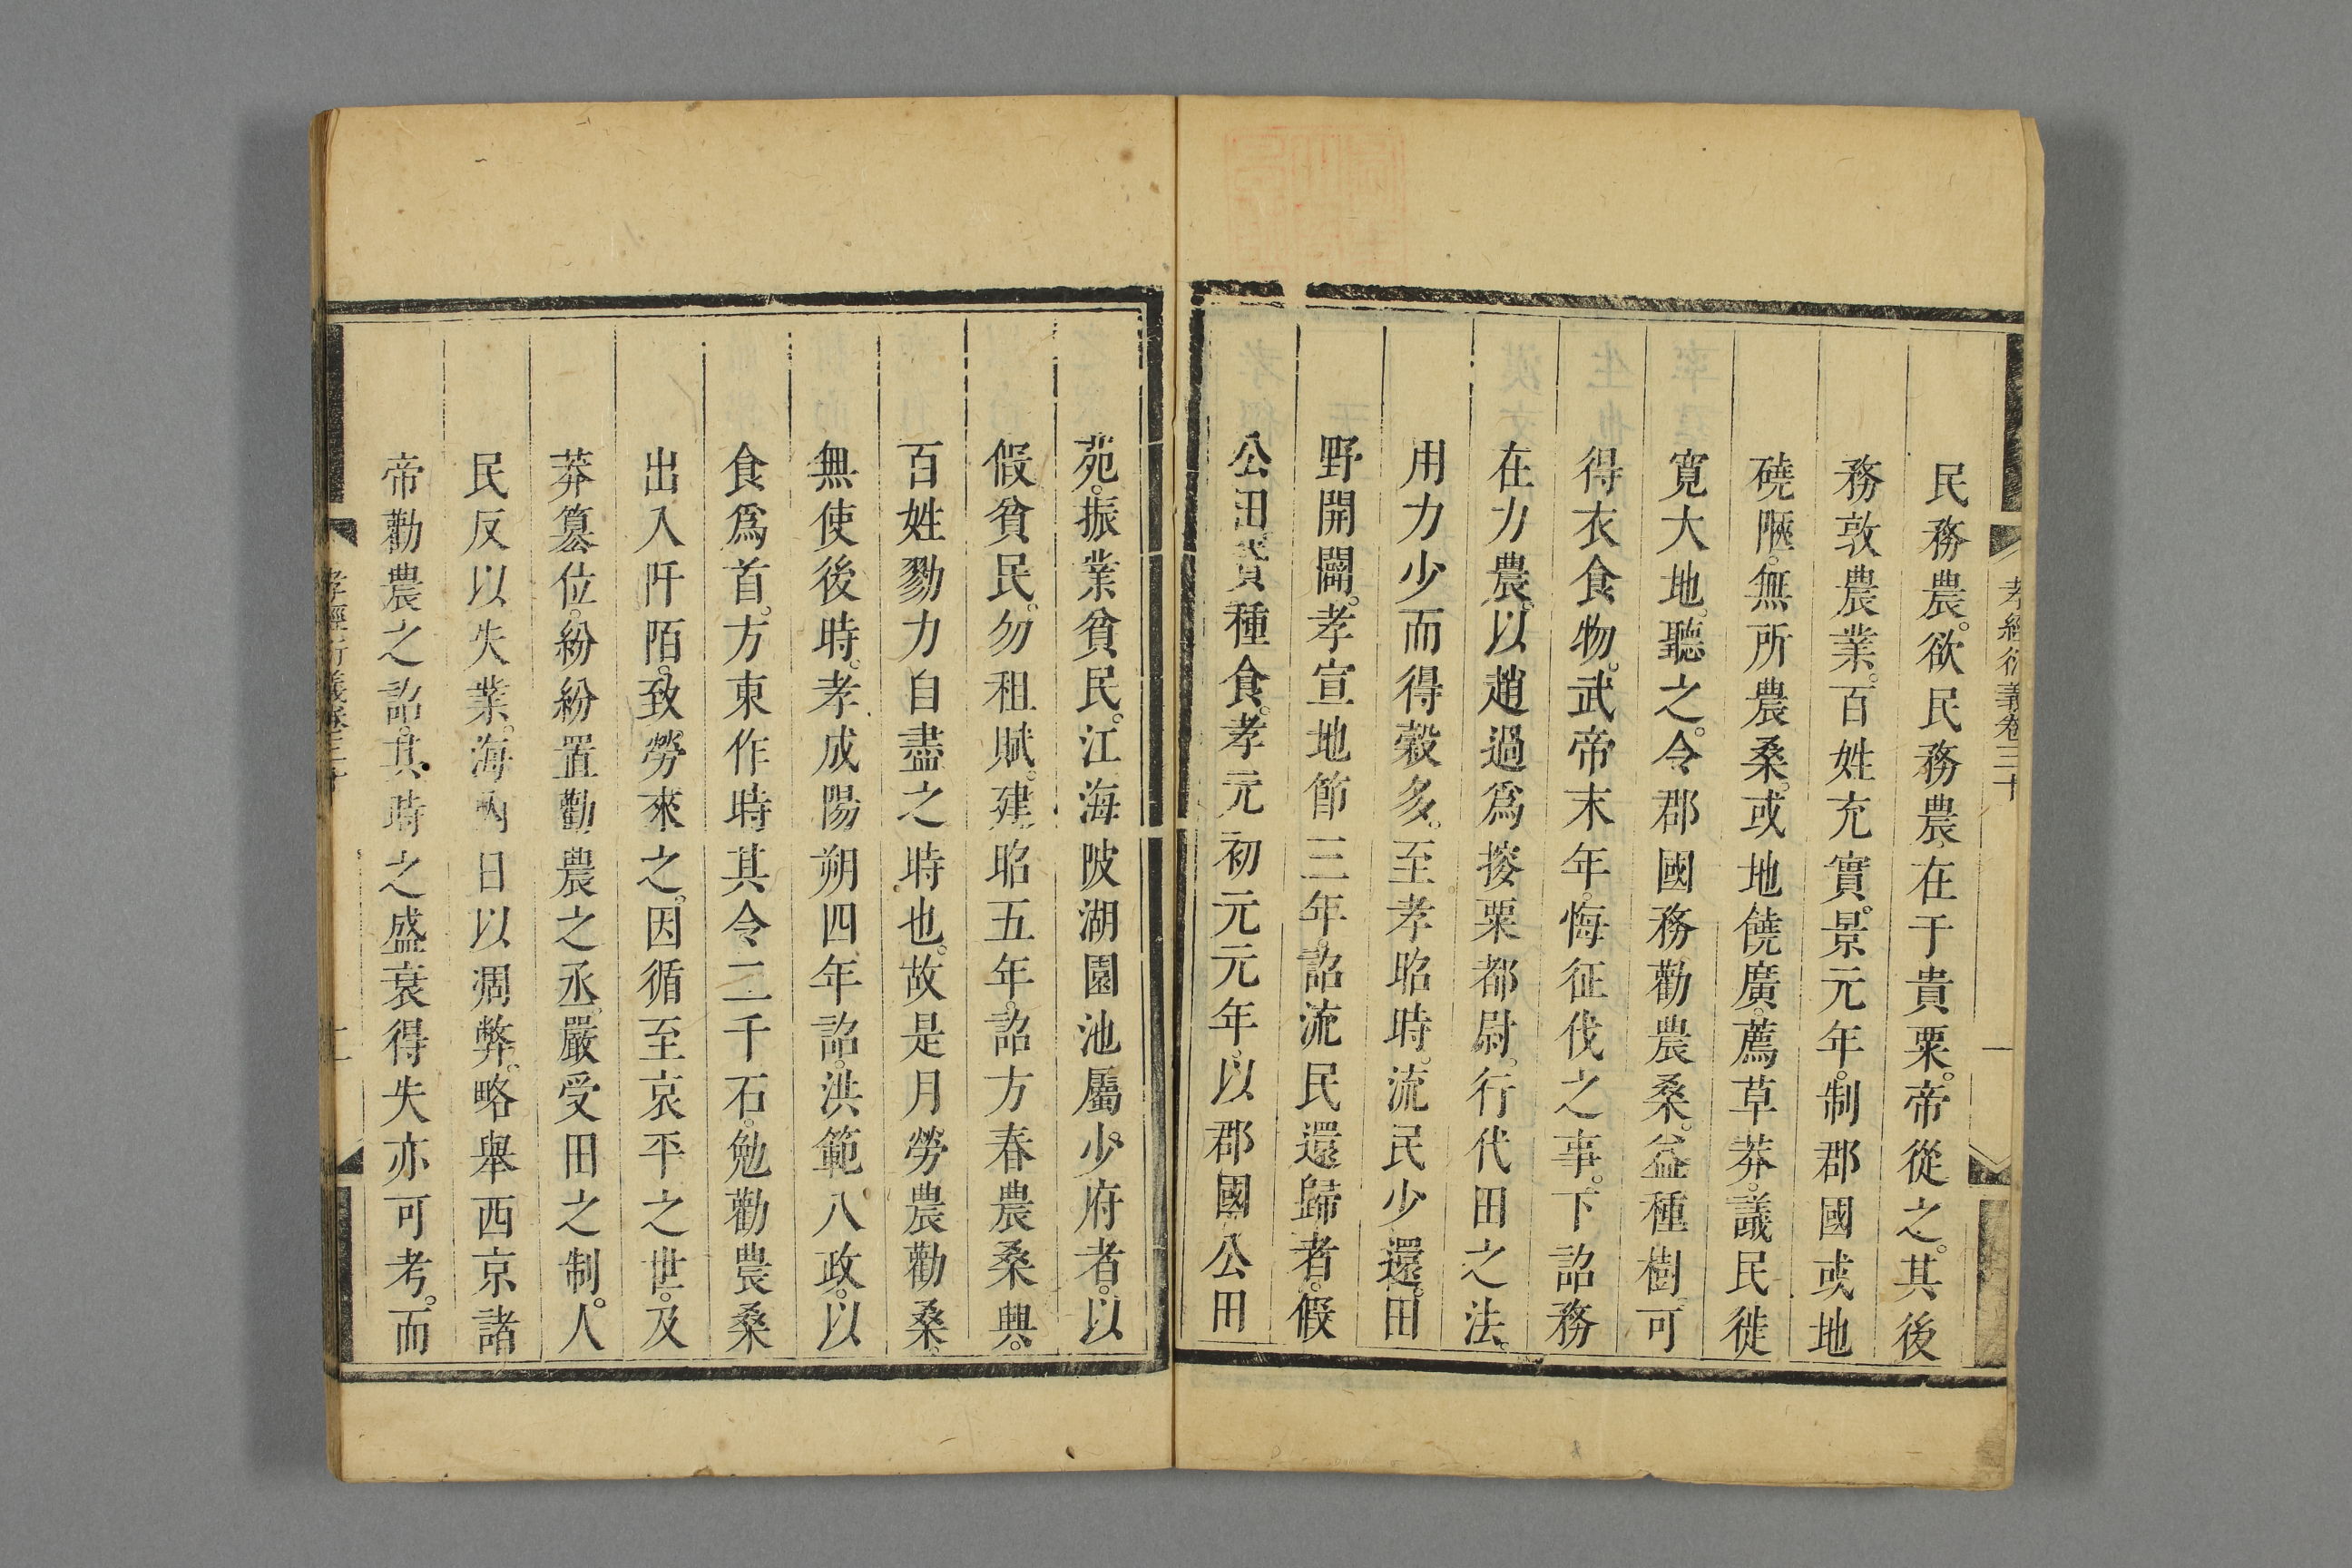 孝經衍義卷三十
一
民務農。欲民務農、在于貴粟。帝從之。其後
務敦農業。百姓充實。景元年。制郡國或地
磽陿。無所農桑。或地饒廣。薦草莽。議民徙
寬大地。聽之。令郡國務勸農桑。益種樹。可
得衣食物。武帝末年。悔征伐之事。下詔務
在力農。以趙過爲搜粟都尉。行代田之法。
用力少而得穀多。至孝昭時。流民少還。田
野開闢。孝宣地節三年。詔流民還歸者。假
公田貸種食。孝元初元元年。以郡國公田
苑。振業貧民。江海陂湖園池屬少府者。以
假貧民。勿租賦。建昭五年。詔方春農桑興。
百姓勠力自盡之時也。故是月勞農勸桑、
無使後時。孝成陽朔四年詔。洪範八政。以
食爲首。方東作時。其令二千石。勉勸農桑
出入阡陌。致勞來之。因循至哀平之世。及
莽篡位。紛紛置勸農之丞。嚴受田之制。人
民反以失業。海內日以凋弊。略舉西京諸
帝勸農之詔。其時之盛衰得失亦可考。而
孝經衍義卷三十